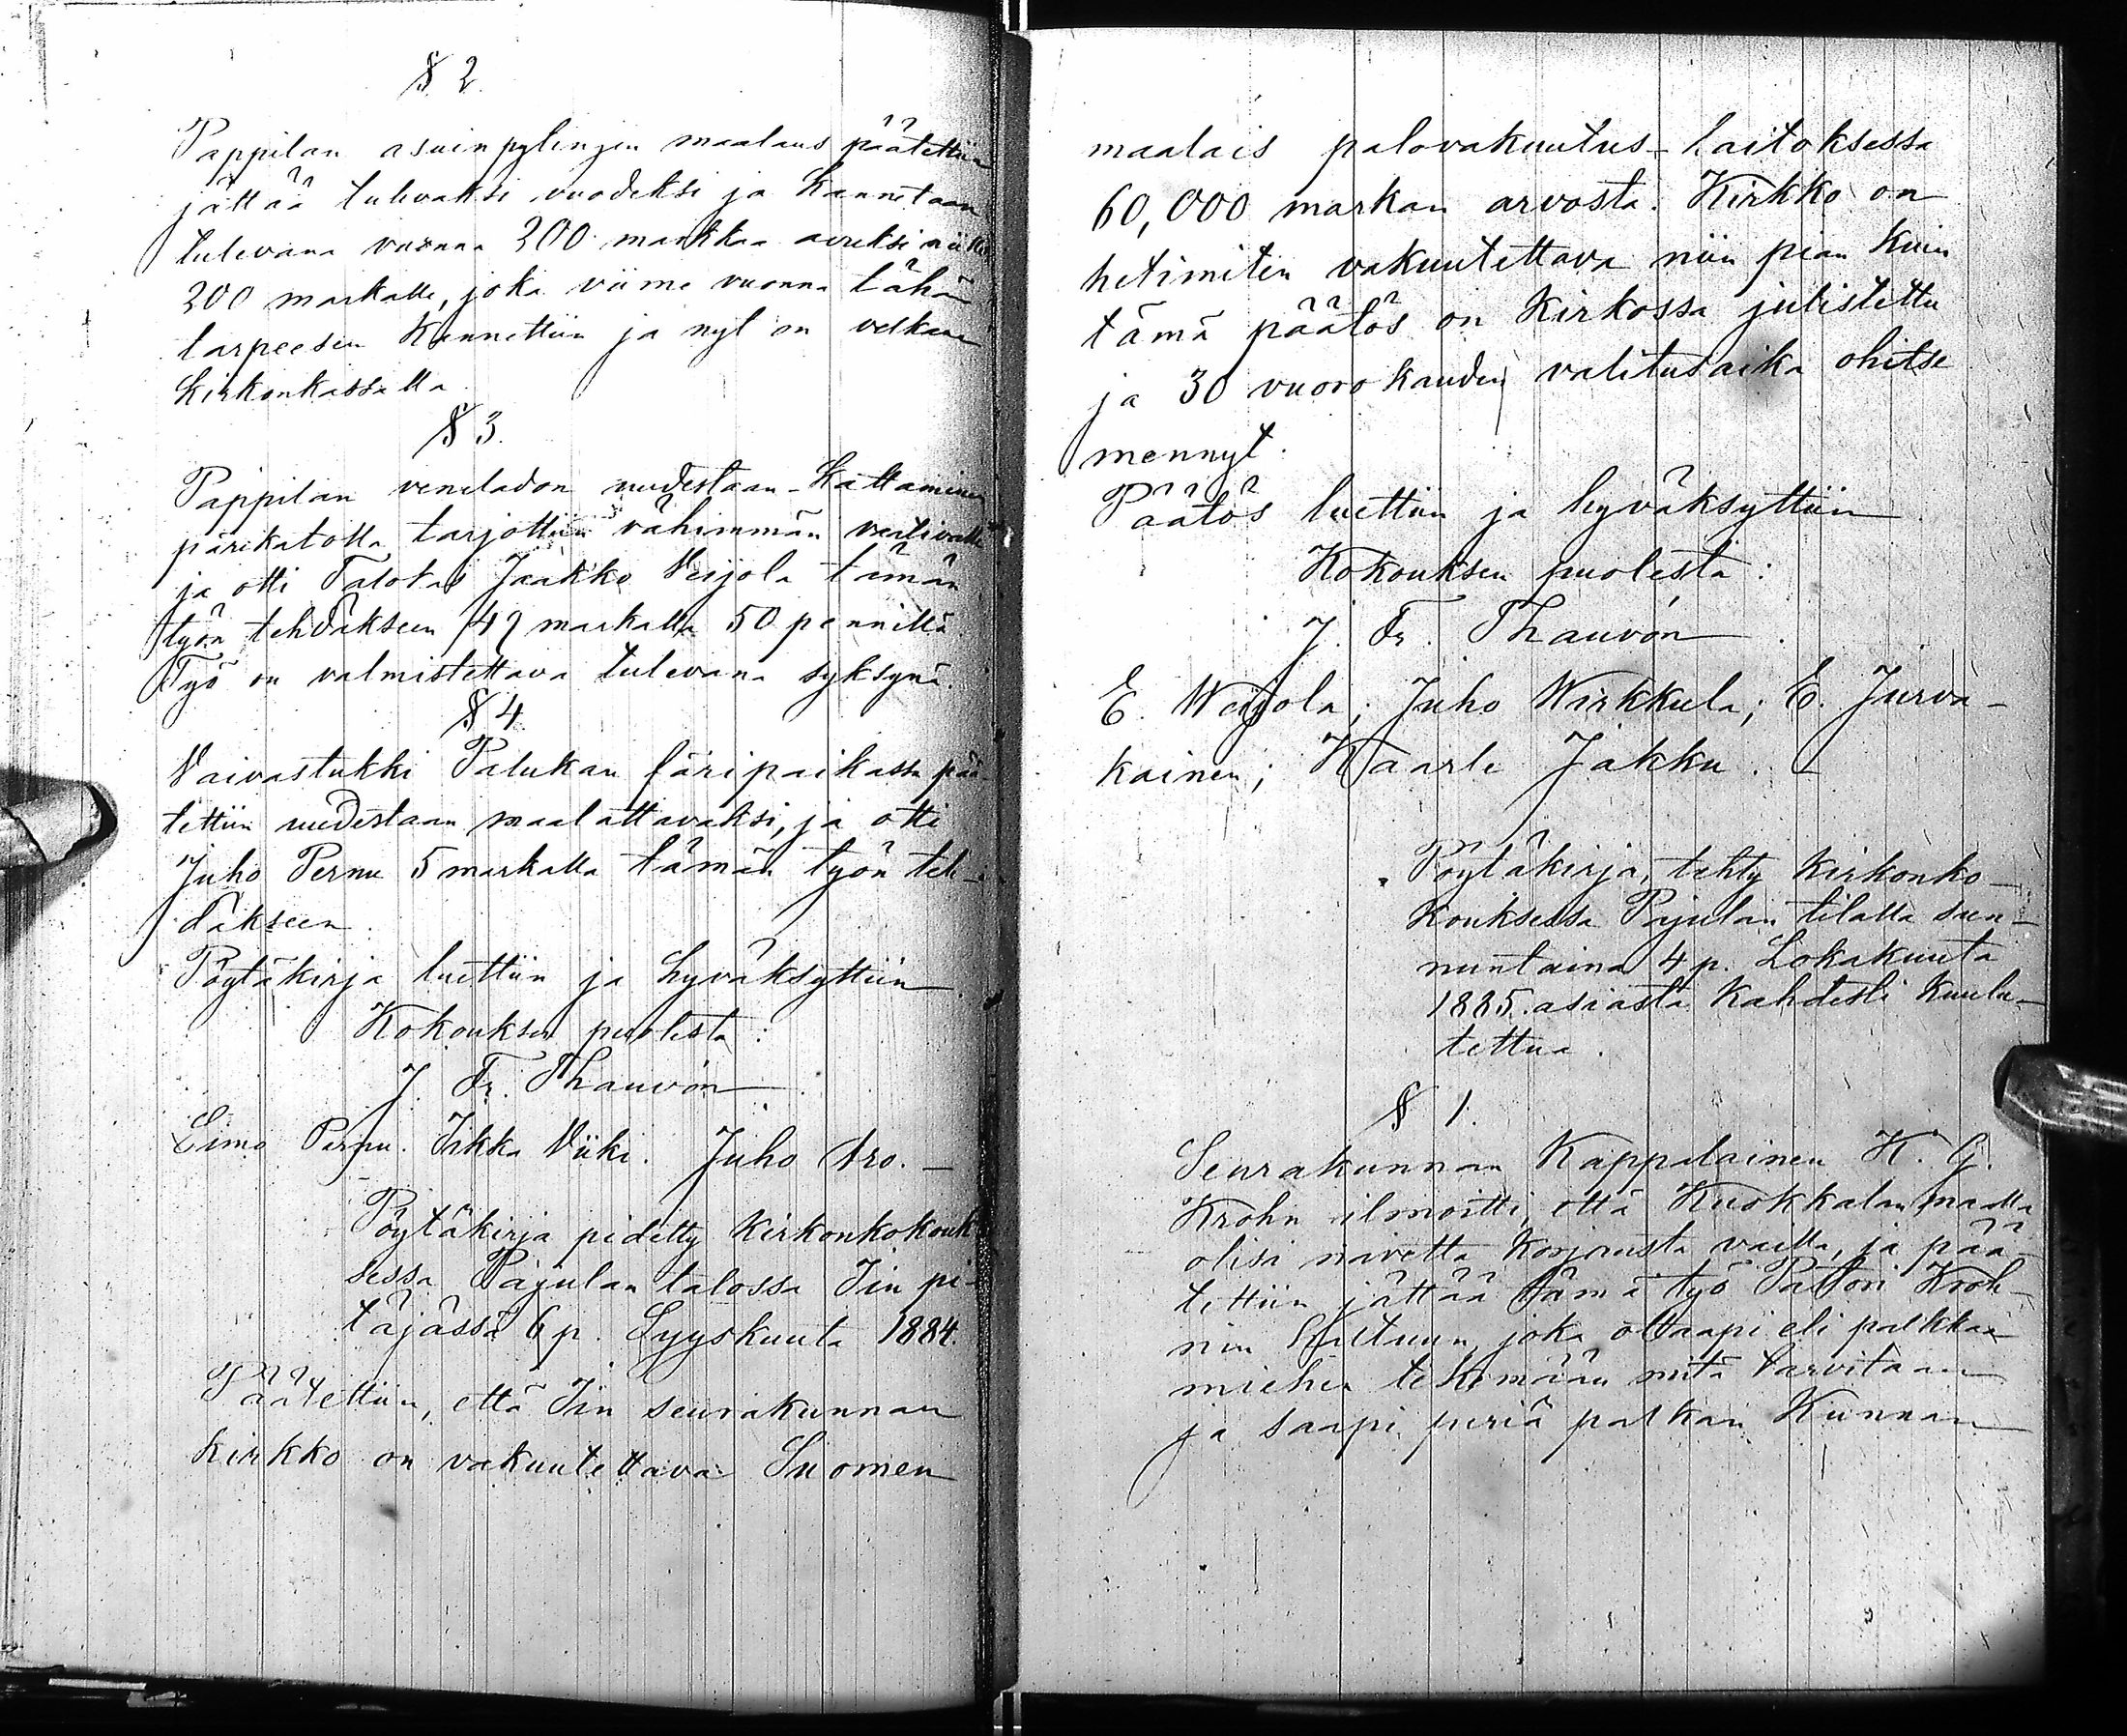 § 2.
Pappilan asuinpytingin maalaus päätettiin
jättää tulevaksi vuodeksi ja kannetaan
tulevana vuonna 200 markkaa avuksi niille
200 markalle, joka viime vuonna tähän
tarpeesen kannettiin ja nyt on velkana
kirkonkassalla
§ 3.
Pappilan veneladon uudestaan-kattaminen
pärekatolla tarjottiin vähimmän vaativalle
ja otti Talokas Jaakko Veijola tämän
työn tehdäkseen 42 markalla 50 pennillä
Työ on valmistettava tulevana syksynä.
§ 4
Vaivastukki Palukan färipaikassa pää-
tettiin uudestaan maalattavaksi, ja otti
Juho Pernu 5 markalla tämän työn teh-
däkseen.
Pöytäkirja luettiin ja hyväksyttiin
Kokouksen puolesta:
J. Fr. Thauvón
Eimo Pernu. Iikka Viiki. Juho Aro. —
Pöytäkirja pidetty kirkonkokouk-
sessa Pajulan talossa Iin pi-
täjässä 6 p. Syyskuuta 1884.
Päätettiin, että Iin seurakunnan
kirkko on vakuutettava Suomen
maalais palovakuutus-laitoksessa
60,000 markan arvosta. Kirkko on
hetimiten vakuutettava niin pian kuin
tämä päätös on kirkossa julistettu
ja 30 vuorokauden valitusaika ohitse
mennyt.
Päätös luettiin ja hyväksyttiin
Kokouksen puolesta:
J. Fr. Thauvón
E. Weijola; Juho Wirkkula; E. Jurva-
kainen; Kaarle Jakku. —
Pöytäkirja, tehty kirkonko-
kouksessa Pajulan tilalla sun-
nuntaina 4 p. Lokakuuta
1885. asiasta kahdesti kuulu-
tettua.
§ 1.
Seurakunnan Kappalainen K. G.
Krohn ilmoitti, että Kuokkalan maalla
olisi navetta korjausta vailla, ja pää-
tettiin jättää tämä työ Pastori Kroh-
nin haltuun, joka ottaapi eli palkkaa
miehen tekemään mitä tarvitaan
ja saapi periä palkan Kunnan